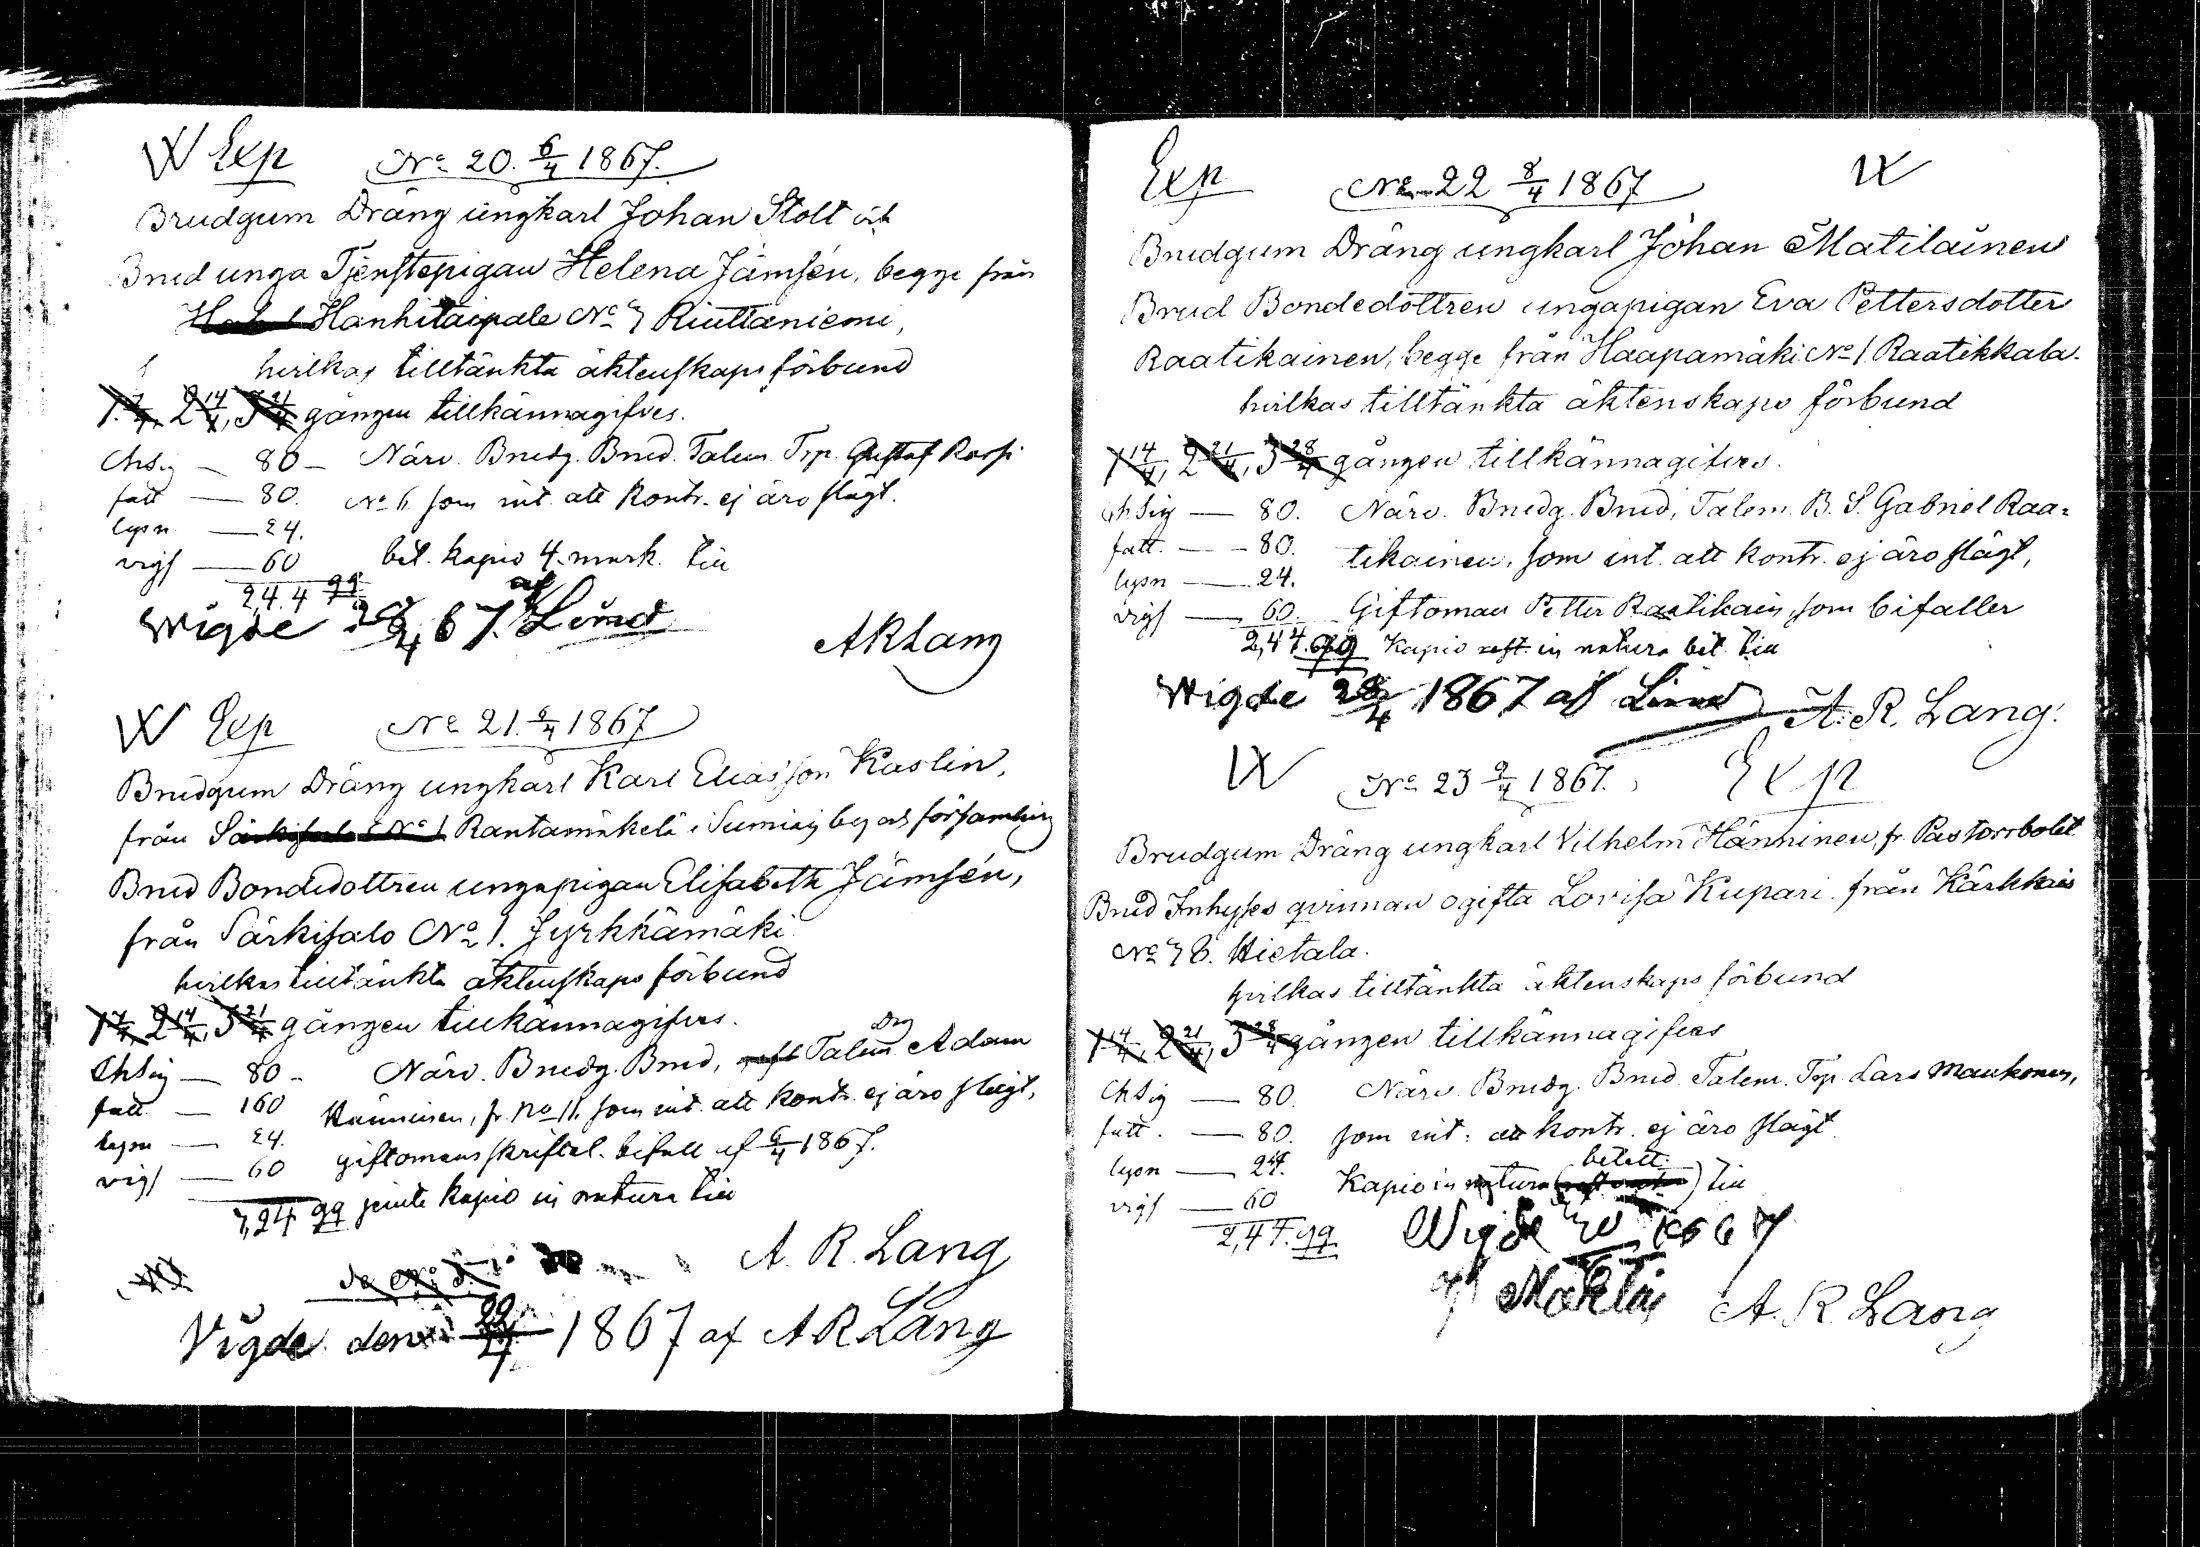 W Exp No 20. 6/4 1867.
Brudgum Dräng ungkarl Johan Stolt och
Brud unga Tjenstepigan Helena Jämsén, begge från
Hanhitaipale No 7 Riuttaniemi,
hvilkas tilltänkta äktenskaps förbund
1 7/4, 2 14/4, 3 21/4 gången tillkännagifves.
Chsig — 80 — Närv. Brudg. Brud. Talem. Trp. Gustaf Rossi
fatt — 80. No 6. som int. att kontr. ej äro slägt.
lysn — 24.
vigs — 60 bet. kapio 4. mark. tiu
2,44 99
Wigde 28/4 67. af Lind
A R Lang
W Exp No 21. 6/4 1867
Brudgum Dräng ungkarl Karl Eliasson Kaslin,
från Rantamäkelä i Sumiais församling
Brud Bondedottren ungapigan Elisabeth Jämsén,
från Särkisalo No 1. Jyrkkämäki
hvilkas tilltänkta äktenskaps förbund
1 7/4, 2 14/4, 3 21/4 gången tillkännagifves.
Chsig — 80 — Närv. Brudg. Brud, Talem. Drg Adam
fatt — 160 Hänninen, fr. No 11. som int. att kontr. ej äro slägt,
lysn — 24. giftomans skriftel. bifall af 6/4 1867.
vigs — 60 kapio in natura tiu
3,24 99
A. R. Lang
Vigde den 22/4 1867 af A R Lang
Exp No 22 8/4 1867 W
Brudgum Dräng ungkarl Johan Matilainen
Brud Bondedottren ungapigan Eva Pettersdotter
Raatikainen, begge från Haapamäki No 1. Raatikkala.
hvilkas tilltänkta äktenskaps förbund
1 14/4, 2 21/4, 3 28/4 gången tillkännagifves.
Chsig — 80. Närv. Brudg. Brud, Talem. B. S. Gabriel Raa=
fatt. — 80. tikainen, som int. att kontr. ej äro slägt,
lysn — 24.
vigs — 60. Giftoman Petter Raatikain, som bifaller
2,44. 99 Kapio rest. in natura bet. tiu
Wigde 28/4 1867 af Lind A. R. Lang.
W No 23 9/4 1867. Exp
Brudgum Dräng ungkarl Vilhelm Hänninen, fr. Pastorsbolet
Brud Inhyses qvinnan ogifta Lovisa Kupari från Kärkkäis
No 7 B. Hietala.
hvilkas tilltänkta äktenskaps förbund
1 14/4, 2 21/4, 3 28/4 gången tillkännagifves
Chsig — 80. Närv. Brudg. Brud. Talem. Trp. Lars Maukonen,
fatt. — 80. som int. att kontr. ej äro slägt.
lysn — 24. Kapio in natura betalt tiu
vigs — 60
2,44. 99 Wigde 1867
A. R. Lang